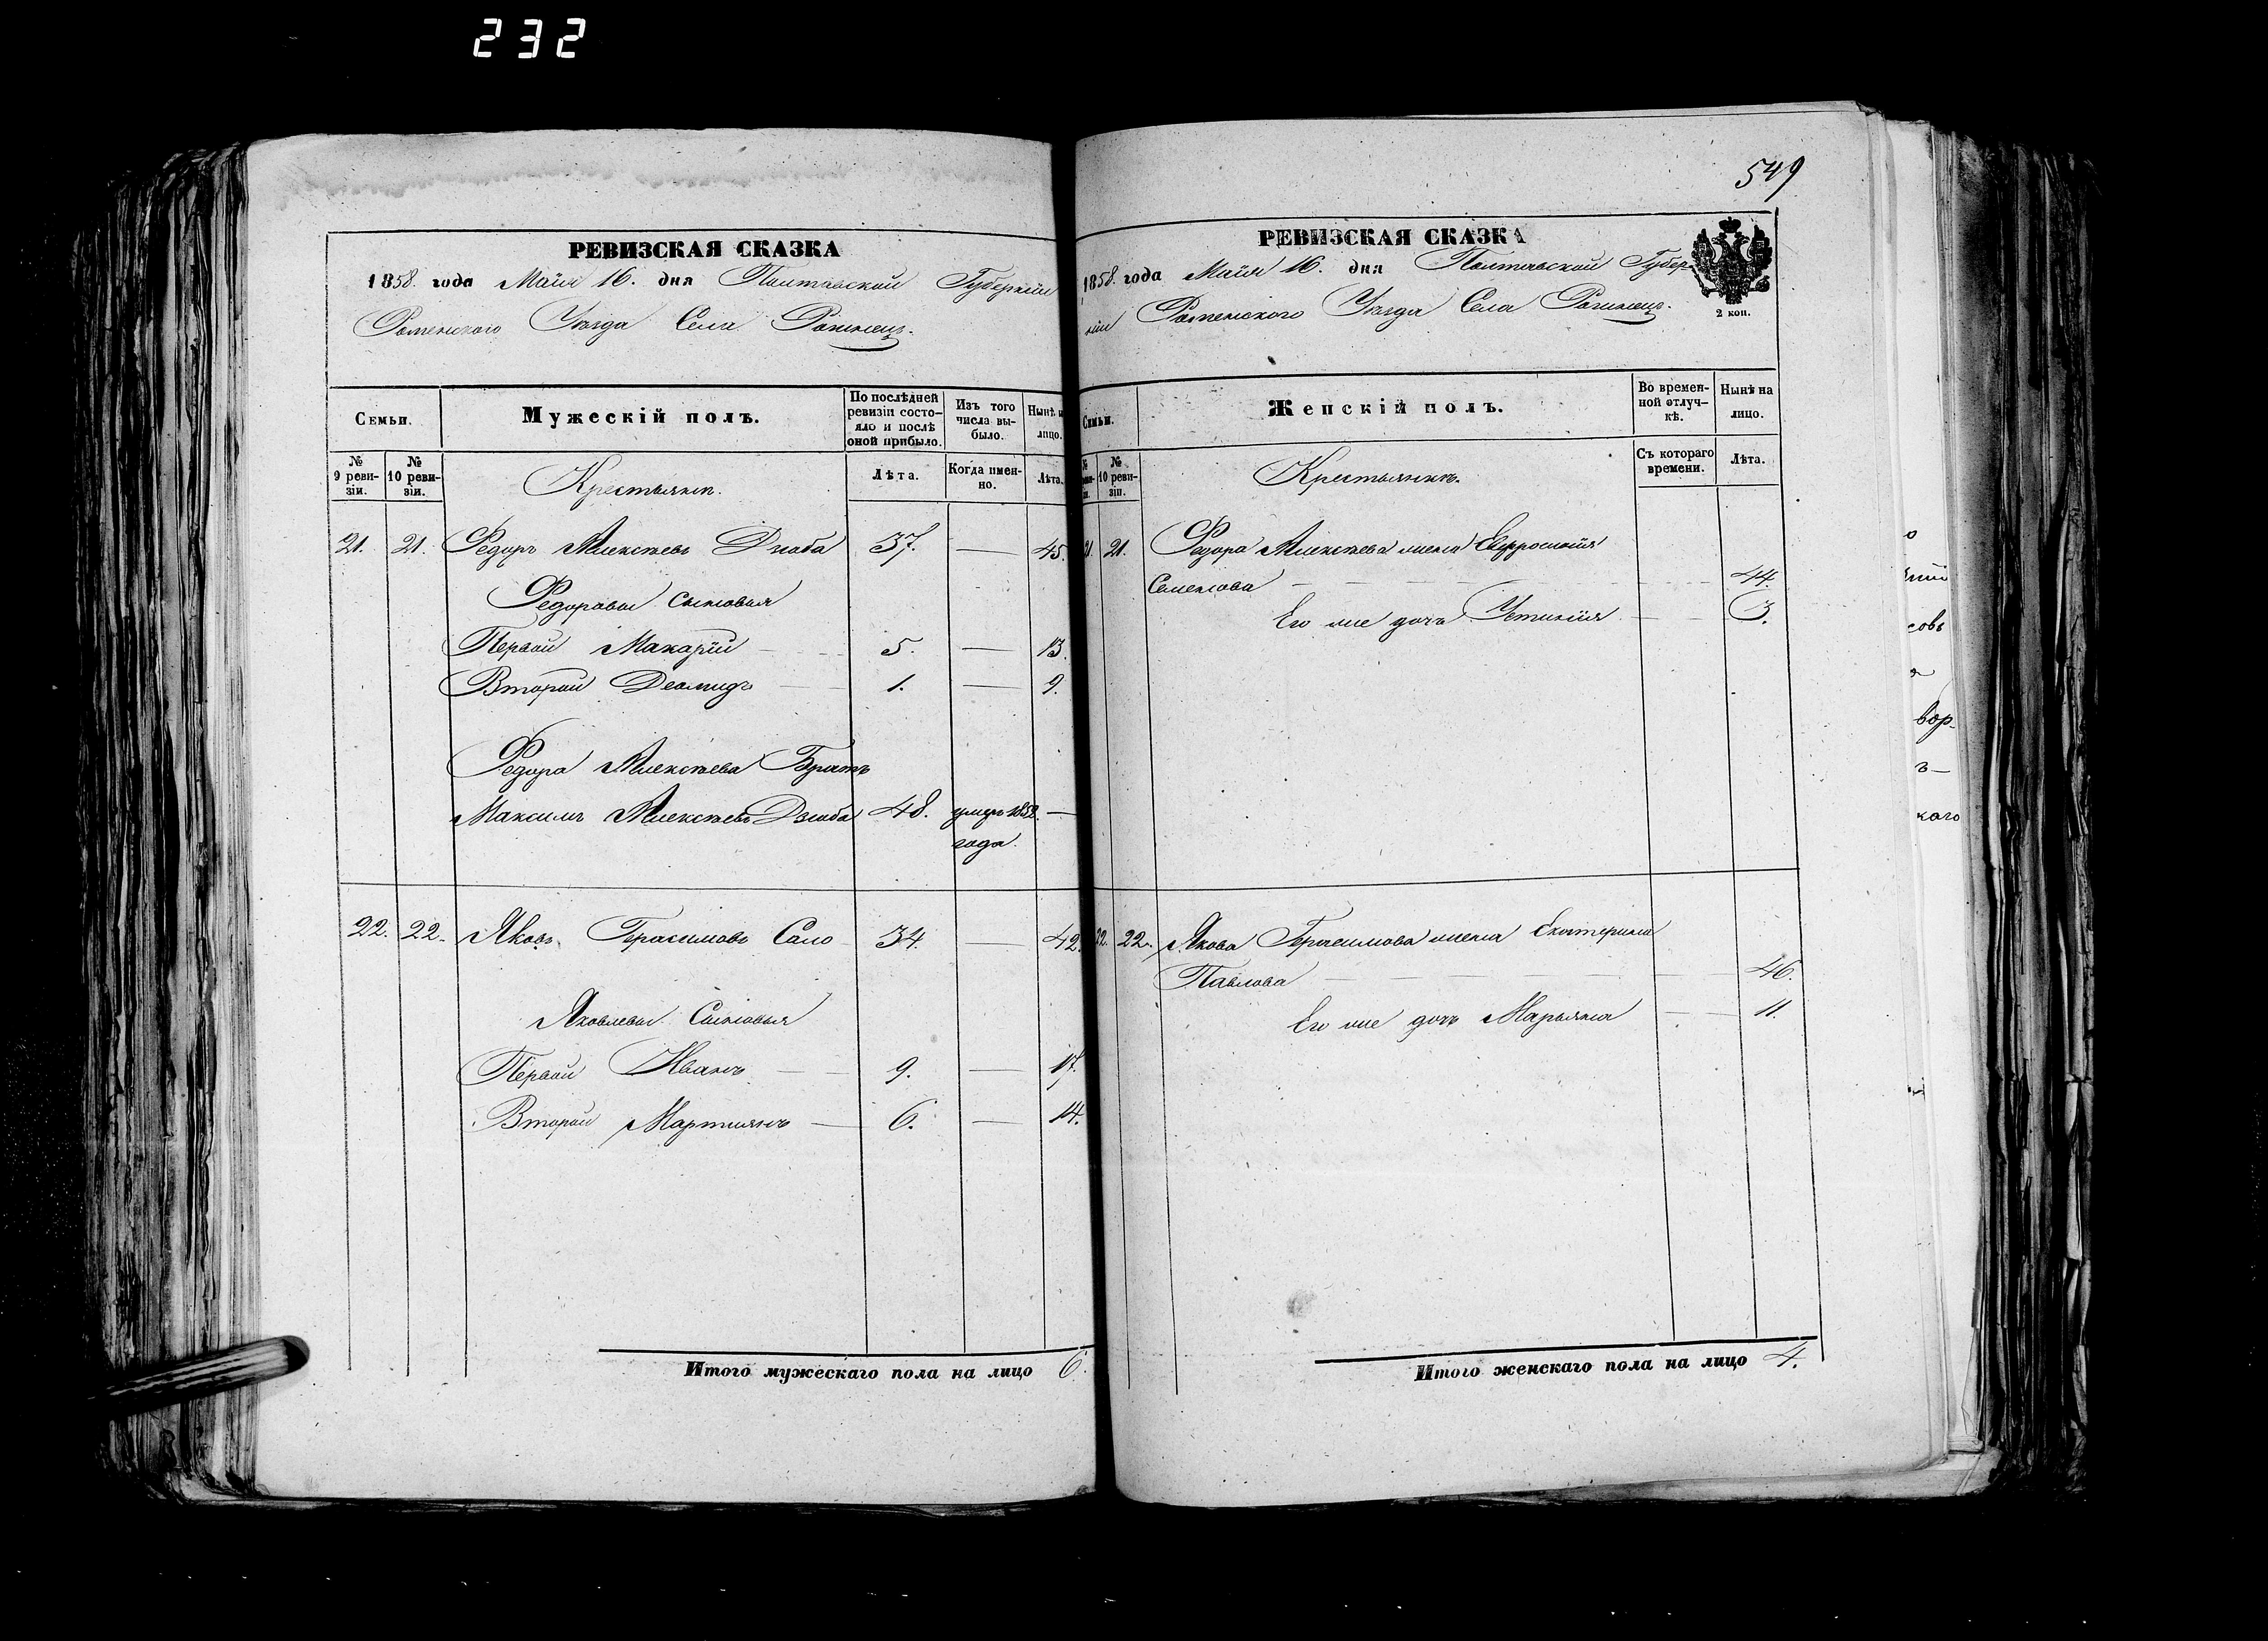 232
РЕВИЗСКАЯ СКАЗКА
1858. года Майя 16. дня Полтавской Губернiи
Роменского Уѣзда Села Рогинец.
Семьи.
Мужескій полъ.
По послѣдней ревизіи состояло и послѣ оной прибыло.
Изъ того числа выбыло.
Нынѣ на лицо.
№ 9 ревизіи.
№ 10 ревизіи.
Крестьяни.
Лѣта.
Когда именно.
Лѣта.
21. 21. Федоръ Алексѣевъ Дзюба 37. — 45.
Федоровы сыновья
Первой Макарій — 5. — 13.
Второй Деомидъ — 1. — 9.
Федора Алексѣева Братъ
Максимъ Алексѣевъ Дзюба 48. умеръ 1852. —
года.
22. 22. Яковъ Герасимовъ Сало 34. — 42.
Яковлевы Сыновья
Первой Иванъ — 9. — 17.
Второй Мартиянъ — 6. — 14.
Итого мужескаго пола на лицо 6.
549
РЕВИЗСКАЯ СКАЗКА
1858. года Майя 16. дня Полтавской Губер-
нiи Роменского Уѣзда Села Рогинец.
2 коп.
Семьи.
Женскій полъ.
Во временной отлучкѣ.
Нынѣ на лицо.
№ 10 ревизіи.
Крестьянки.
Съ котораго времени.
Лѣта.
21. 21. Федора Алексѣева жена Евфросинія
Семенова — 44.
Его же дочь Устинія — 3.
22. 22. Якова Герасимова жена Екатерина
Павлова — 46.
Его же дочь Марьяна — 11.
Итого женскаго пола на лицо 4.